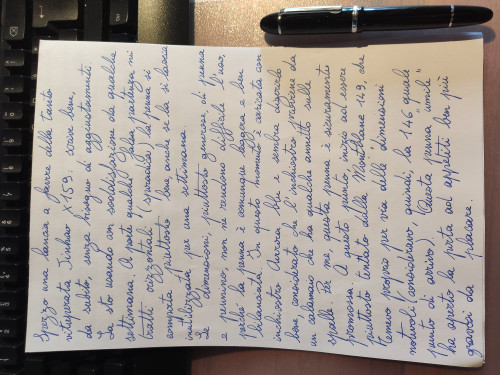 Spezzo una lancia a favore della tanto
vituperata Jinhao X159: scrive bene,
da subito, senza bisogno di aggiustamenti.
La sto usando con soddisfazione da qualche
settimana. A parte qualche falsa partenza nei
tratti orizzontali (sporadica) la penna si
comporta piuttosto bene anche se la si lascia
inutilizzata per una settimana.
Le dimensioni, piuttosto generose, di penna
e pennino, non ne rendono difficile l'uso,
poiché la penna è comunque leggera e ben
bilanciata. In questo momento è caricata con
inchiostro Aurora blu e sembra digerirlo
bene, considerato che l'inchiostro proviene da
un calamaio che ha qualche annetto sulle
spalle. Per me, questa penna è sicuramente
promossa. A questo punto, inizio ad essere
piuttosto tentato dalla Montblanc 149, che
temevo proprio per via delle dimensioni
notevoli (consideravo, quindi, la 146 quale
punto di arrivo). Questa penna "umile"
ha aperto la porta ad appetiti ben più
gravosi da placare.